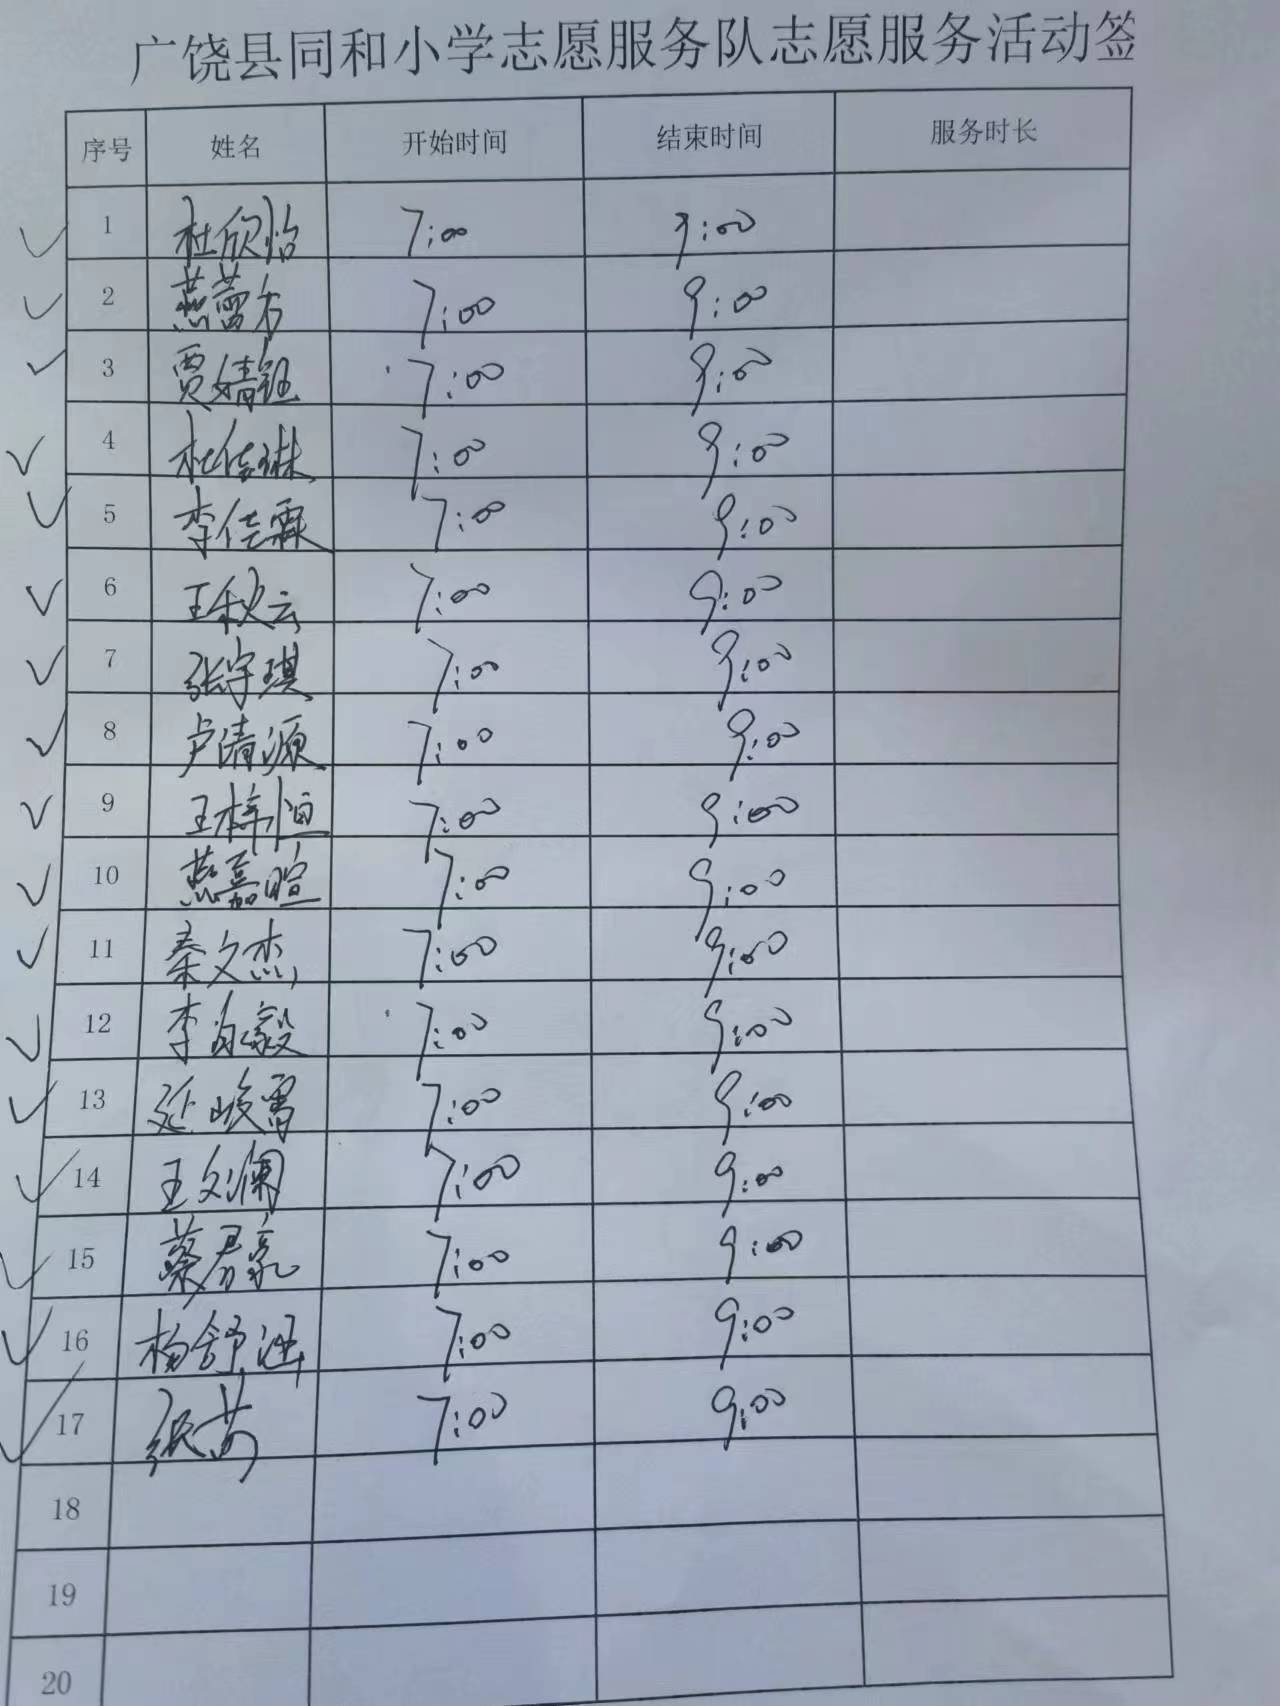 广饶县同和小学志愿服务队志愿服务活动签
序号 姓名 开始时间 结束时间 服务时长
1 杜欣怡 7:00 9:00
2 燕蕾 7:00 9:00
3 贾婧钰 7:00 9:00
4 杜佳琳 7:00 9:00
5 李佳霖 7:00 9:00
6 王秋云 7:00 9:00
7 张宇琪 7:00 9:00
8 卢清源 7:00 9:00
9 王梓恒 7:00 9:00
10 燕嘉暄 7:00 9:00
11 秦文杰 7:00 9:00
12 李 毅 7:00 9:00
13 延峻霄 7:00 9:00
14 王文澜 7:00 9:00
15 蔡君 7:00 9:00
16 杨舒涵 7:00 9:00
17 张 7:00 9:00
18
19
20